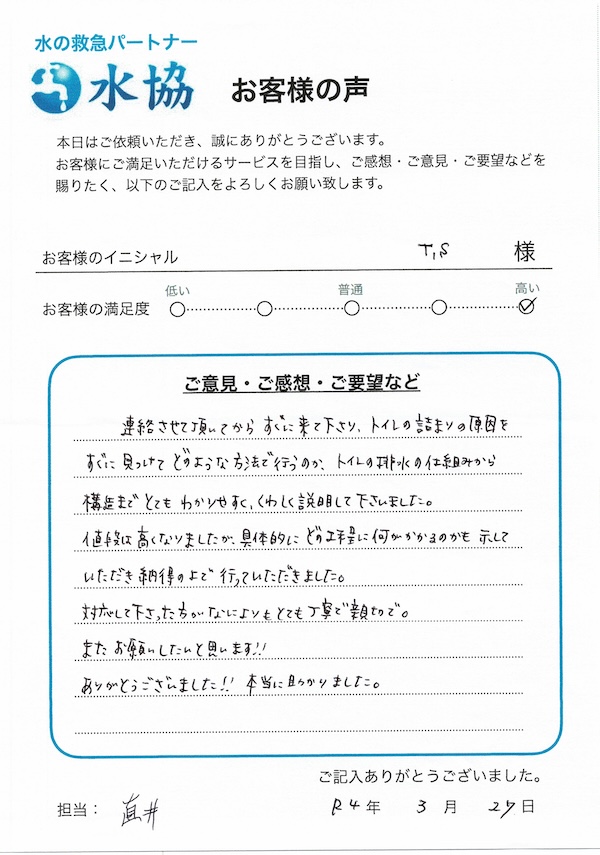 水の救急パートナー
水協
お客様の声
本日はご依頼いただき、誠にありがとうございます。
お客様にご満足いただけるサービスを目指し、ご感想・ご意見・ご要望などを
賜りたく、以下のご記入をよろしくお願い致します。
お客様のイニシャル T,S 様
低い 普通 高い
お客様の満足度
ご意見・ご感想・ご要望など
連絡させて頂いてから すぐに来て下さり、トイレの詰まりの原因を
すぐに見つけて どのような方法で行うのか、トイレの排水の仕組みから
構造まで とても わかりやすく、くわしく説明して下さいました。
値段は高くなりましたが、具体的に どの工程に何がかかるのかも 示して
いただき 納得の上で 行っていただきました。
対応して下さった方がなによりもとても丁寧で親切で。
また お願いしたいと思います!!
ありがとうございました!! 本当に助かりました。
ご記入ありがとうございました。
担当: 直井 R4年 3月 27日